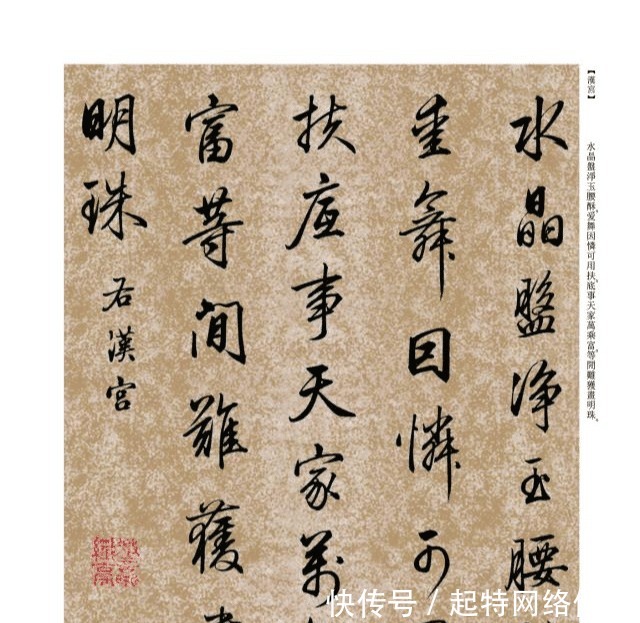 【漢宮】
水晶盤淨玉腰酥，爱舞因憐可用扶。底事天家萬乘富，等閒難獲畫明珠。
水晶盤净玉腰
爱舞因憐可
扶底事天家萬
富等閒難獲
明珠
右漢宮
快传号 / 起特网络